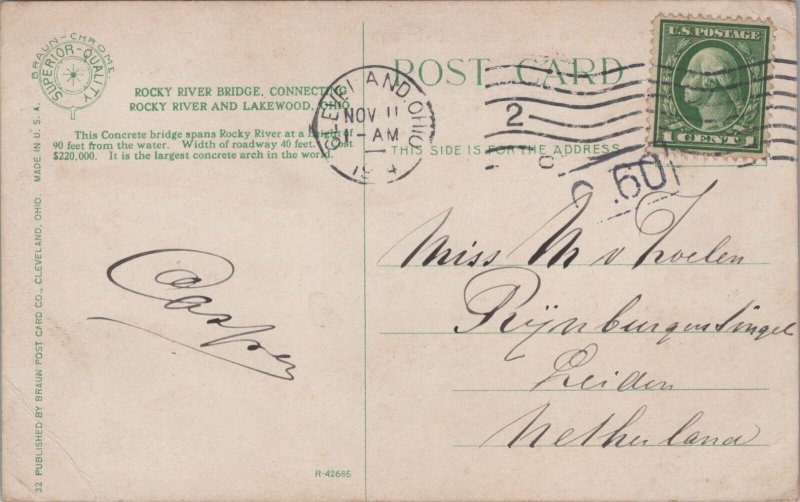 BRAUN-CHROME
SUPERIOR-QUALITY
32 PUBLISHED BY BRAUN POST CARD CO., CLEVELAND, OHIO MADE IN U. S. A.
ROCKY RIVER BRIDGE, CONNECTING
ROCKY RIVER AND LAKEWOOD, OHIO
This Concrete bridge spans Rocky River at a
90 feet from the water. Width of roadway 40 feet. Cost
$220,000. It is the largest concrete arch in the world.
POST CARD
THIS SIDE IS FOR THE ADDRESS
CLEVELAND, OHIO
NOV 11
1-AM
2
U.S. POSTAGE
1 CENT 1
60
Casper
Miss M v Zoelen
Rijnburgersingel
Leiden
Netherland
R-42665